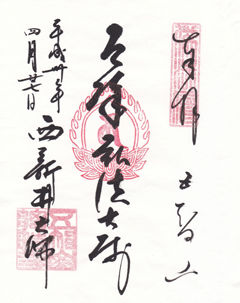 奉拝
五智山
厄除弘法大師
西新井大師
平成卅年
四月廿日